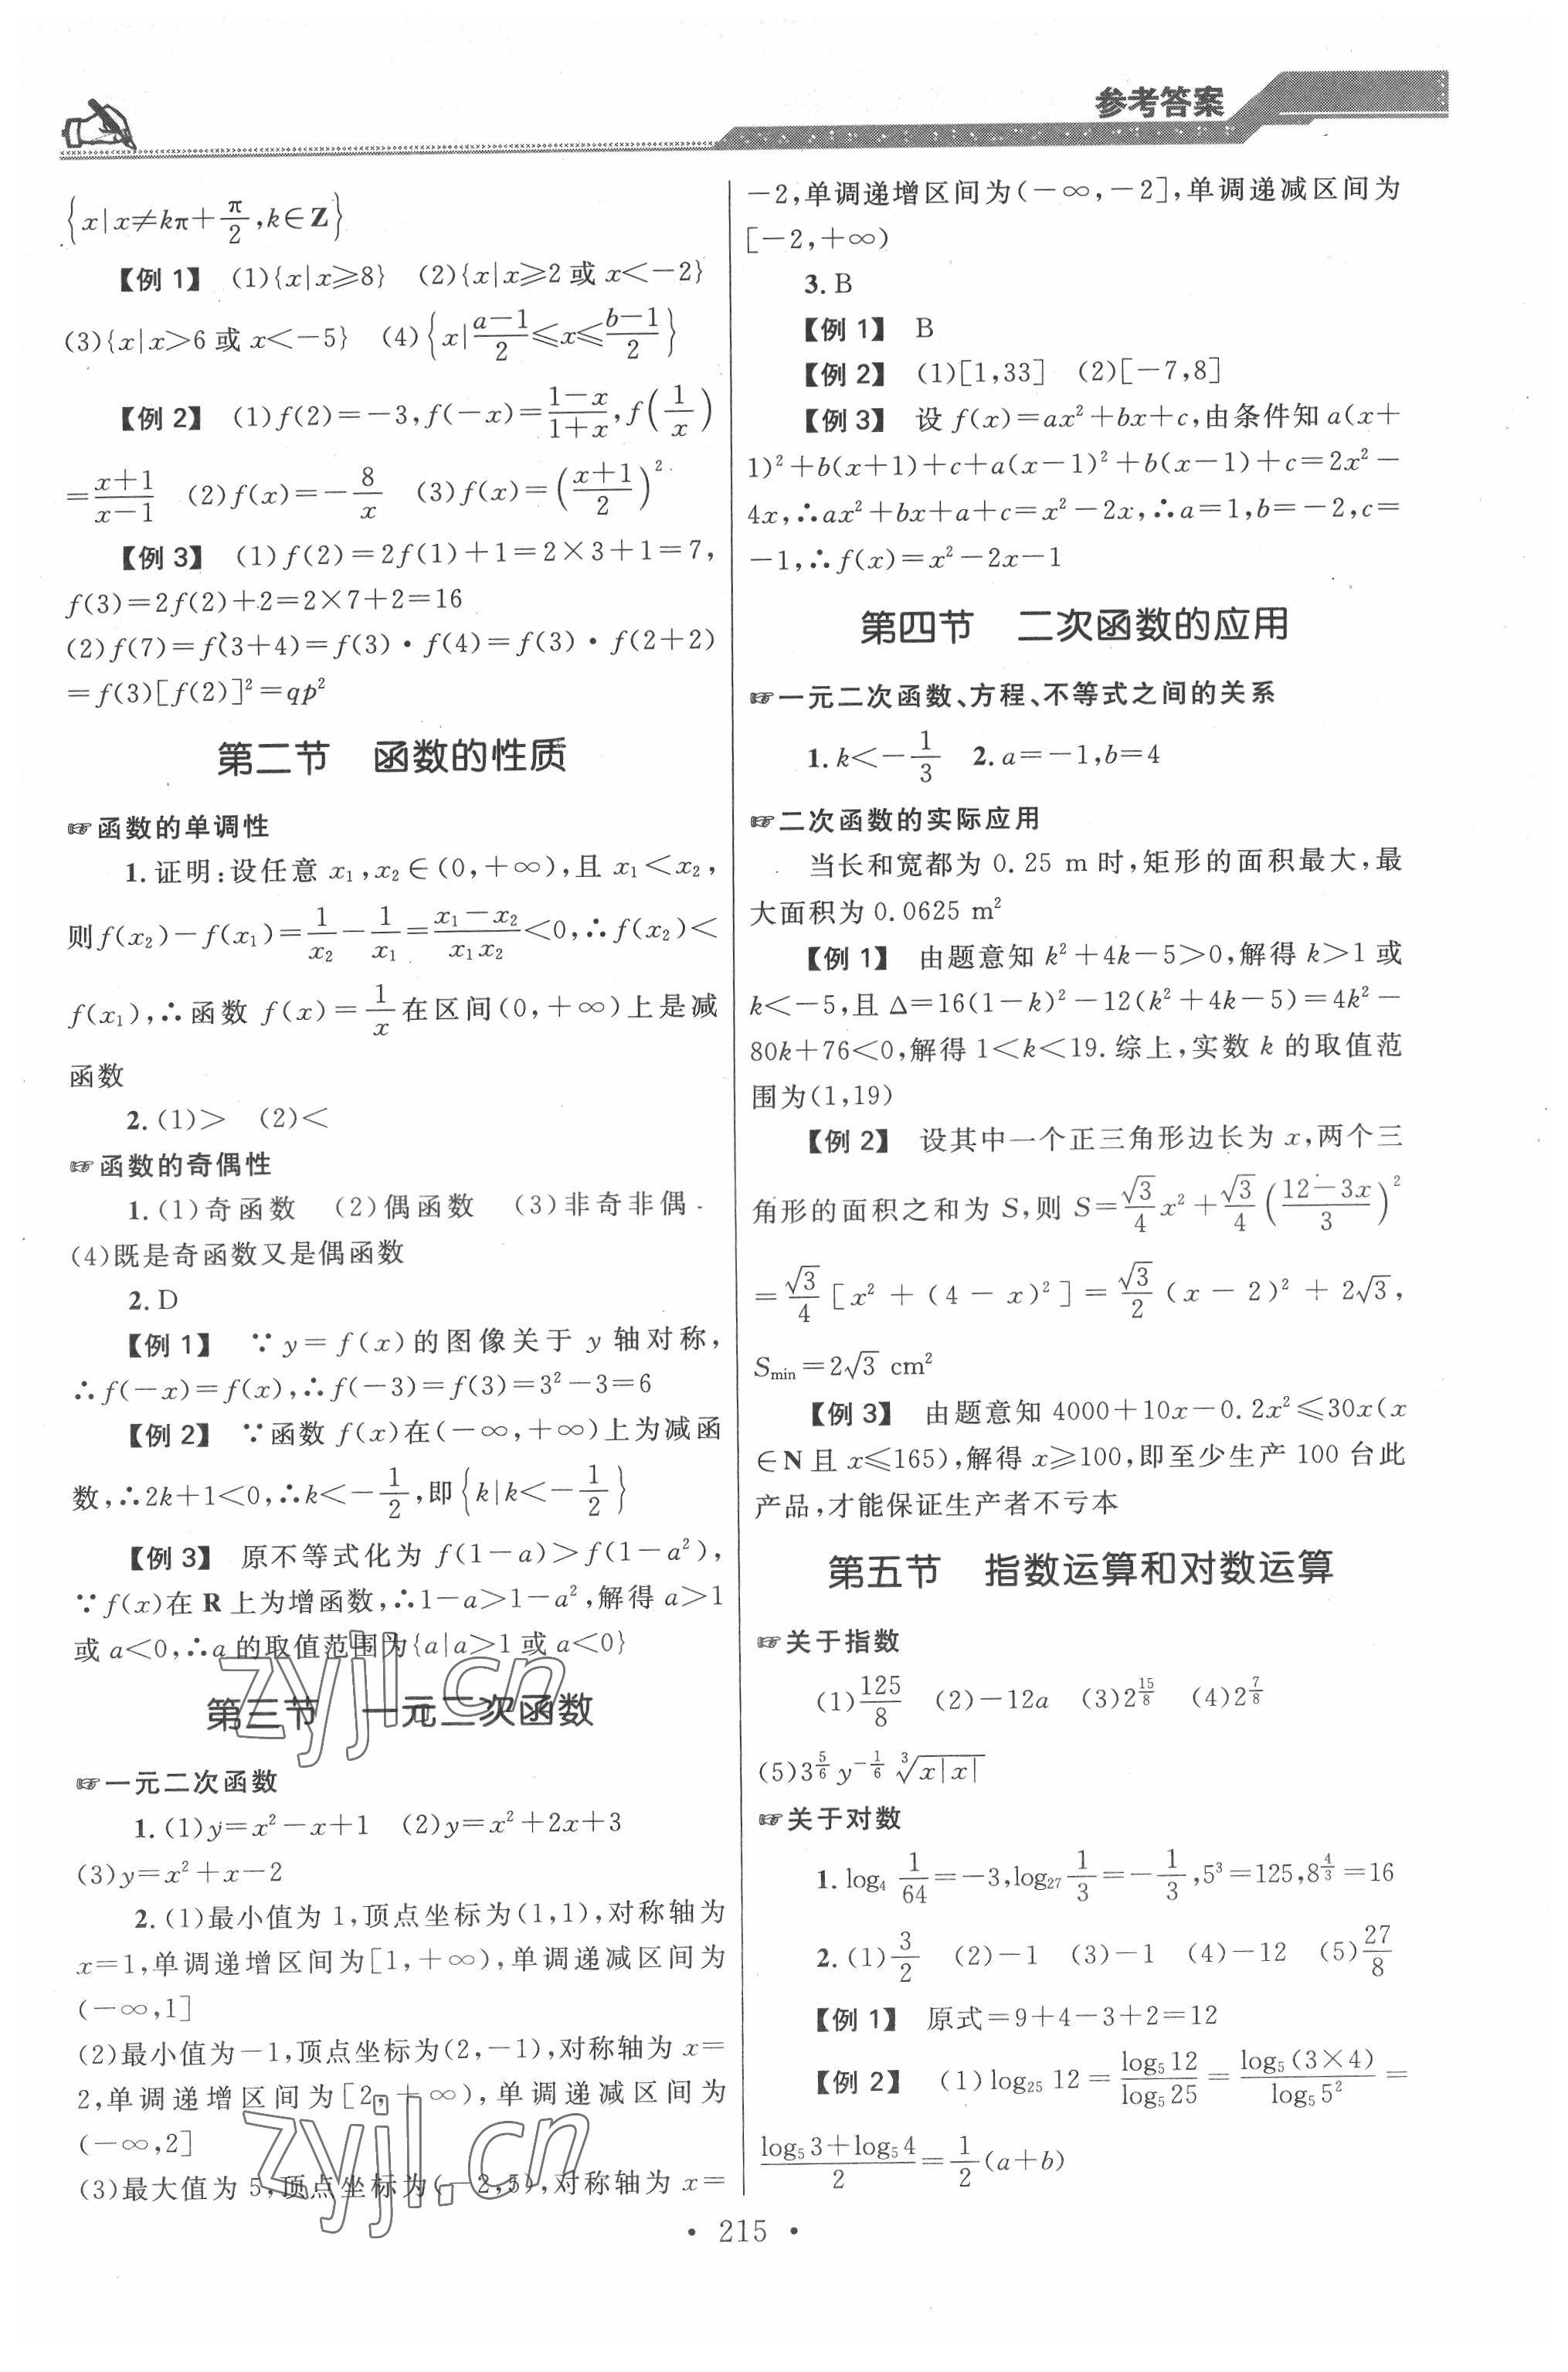 参考答案
{x|x≠kπ+π/2,k∈Z}
【例1】 (1){x|x≥8} (2){x|x≥2或x<-2}
(3){x|x>6或x<-5} (4){x|(a-1)/2≤x≤(b-1)/2}
【例2】 (1)f(2)=-3,f(-x)=(1-x)/(1+x),f(1/x)
=(x+1)/(x-1) (2)f(x)=-8/x (3)f(x)=((x+1)/2)²
【例3】 (1)f(2)=2f(1)+1=2×3+1=7,
f(3)=2f(2)+2=2×7+2=16
(2)f(7)=f(3+4)=f(3)·f(4)=f(3)·f(2+2)
=f(3)[f(2)]²=qp²
第二节 函数的性质
☞函数的单调性
1.证明:设任意x₁,x₂∈(0,+∞),且x₁<x₂,
则f(x₂)-f(x₁)=1/x₂-1/x₁=(x₁-x₂)/(x₁x₂)<0,∴f(x₂)<
f(x₁),∴函数f(x)=1/x在区间(0,+∞)上是减
函数
2.(1)> (2)<
☞函数的奇偶性
1.(1)奇函数 (2)偶函数 (3)非奇非偶
(4)既是奇函数又是偶函数
2.D
【例1】 ∵y=f(x)的图像关于y轴对称,
∴f(-x)=f(x),∴f(-3)=f(3)=3²-3=6
【例2】 ∵函数f(x)在(-∞,+∞)上为减函
数,∴2k+1<0,∴k<-1/2,即{k|k<-1/2}
【例3】 原不等式化为f(1-a)>f(1-a²),
∵f(x)在R上为增函数,∴1-a>1-a²,解得a>1
或a<0,∴a的取值范围为{a|a>1或a<0}
第三节 一元二次函数
☞一元二次函数
1.(1)y=x²-x+1 (2)y=x²+2x+3
(3)y=x²+x-2
2.(1)最小值为1,顶点坐标为(1,1),对称轴为
x=1,单调递增区间为[1,+∞),单调递减区间为
(-∞,1]
(2)最小值为-1,顶点坐标为(2,-1),对称轴为x=
2,单调递增区间为[2,+∞),单调递减区间为
(-∞,2]
(3)最大值为5,顶点坐标为(-2,5),对称轴为x=
-2,单调递增区间为(-∞,-2],单调递减区间为
[-2,+∞)
3.B
【例1】 B
【例2】 (1)[1,33] (2)[-7,8]
【例3】 设f(x)=ax²+bx+c,由条件知a(x+
1)²+b(x+1)+c+a(x-1)²+b(x-1)+c=2x²-
4x,∴ax²+bx+a+c=x²-2x,∴a=1,b=-2,c=
-1,∴f(x)=x²-2x-1
第四节 二次函数的应用
☞一元二次函数、方程、不等式之间的关系
1.k<-1/3 2.a=-1,b=4
☞二次函数的实际应用
当长和宽都为0.25 m时,矩形的面积最大,最
大面积为0.0625 m²
【例1】 由题意知k²+4k-5>0,解得k>1或
k<-5,且Δ=16(1-k)²-12(k²+4k-5)=4k²-
80k+76<0,解得1<k<19.综上,实数k的取值范
围为(1,19)
【例2】 设其中一个正三角形边长为x,两个三
角形的面积之和为S,则S=√3/4 x²+√3/4((12-3x)/3)²
=√3/4[x²+(4-x)²]=√3/2(x-2)²+2√3,
Smin=2√3 cm²
【例3】 由题意知4000+10x-0.2x²≤30x(x
∈N且x≤165),解得x≥100,即至少生产100台此
产品,才能保证生产者不亏本
第五节 指数运算和对数运算
☞关于指数
(1)125/8 (2)-12a (3)2^(15/8) (4)2^(7/8)
(5)3^(5/6) y^(-1/6) ∛(x|x|)
☞关于对数
1.log₄ 1/64=-3,log₂₇ 1/3=-1/3,5³=125,8^(4/3)=16
2.(1)3/2 (2)-1 (3)-1 (4)-12 (5)27/8
【例1】 原式=9+4-3+2=12
【例2】 (1)log₂₅12=log₅12/log₅25=log₅(3×4)/log₅5²=
(log₅3+log₅4)/2=1/2(a+b)
·215·
zyjl.cn
zyjl.cn